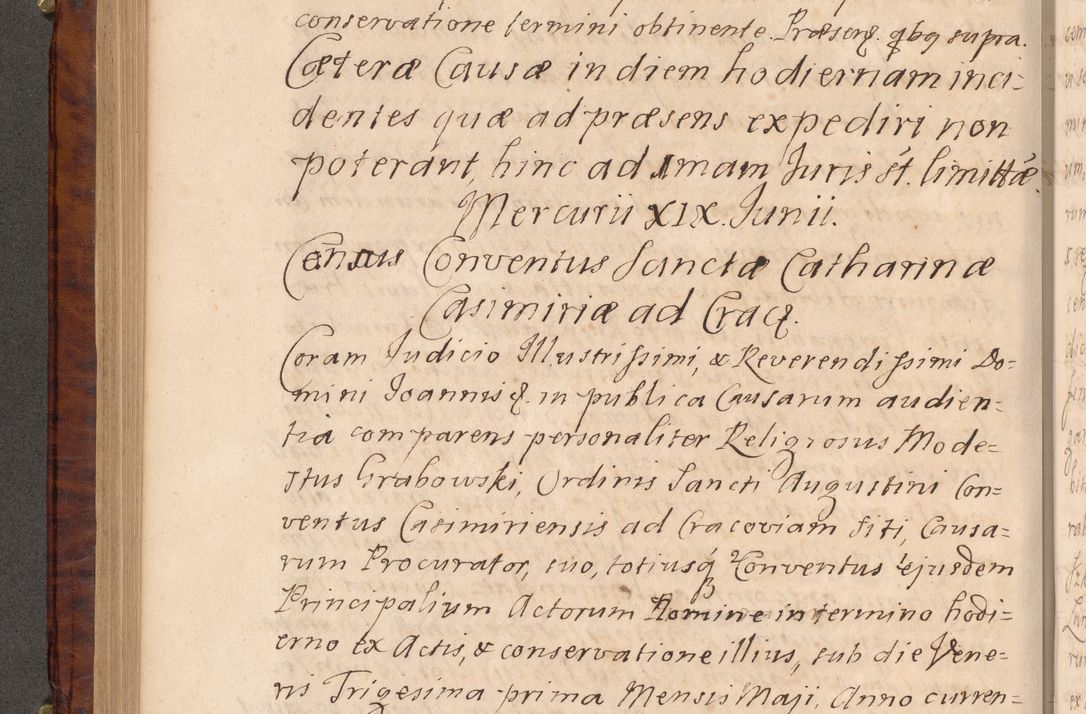 conservatione termini obtinente. Præsen. qbq supra.
Cæteræ Causæ in diem hodiernam inci=
dentes quæ ad præsens expediri non
poterant, hinc ad Imam Juris st. limittæ.
Mercurii XIX. Junii.
Census Conventus Sanctæ Catharinæ
Casimiriæ ad Crac.
Coram Judicio Illustrissimi, & Reverendissimi Do=
mini Joannis &. in publica Causarum audien=
tia comparens personaliter Religiosus Mode=
stus Grabowski, Ordinis Sancti Augustini Con=
ventus Casimiriensis ad Cracoviam siti, Causa=
rum Procurator, suo, totiusq́ Conventus ejusdem
Principalium Actorum Nomine in termino hodi=
erno ex Actis, & conservatione illius, sub die Vene=
ris Trigesima prima Mensis Maji, Anno curren=